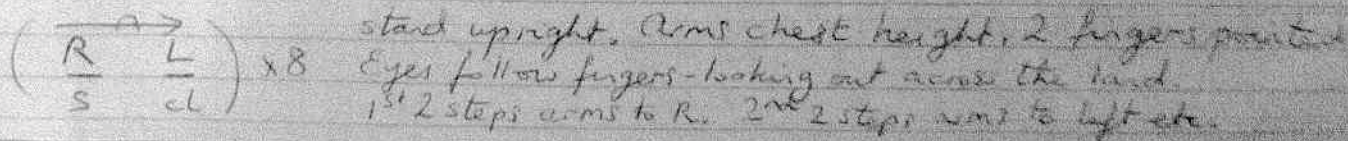 stand upright. Arms chest height, 2 fingers pointed
(R L) x8 Eyes follow fingers - looking out across the land.
s cl 1st 2 steps arms to R. 2nd 2 steps arms to left etc.